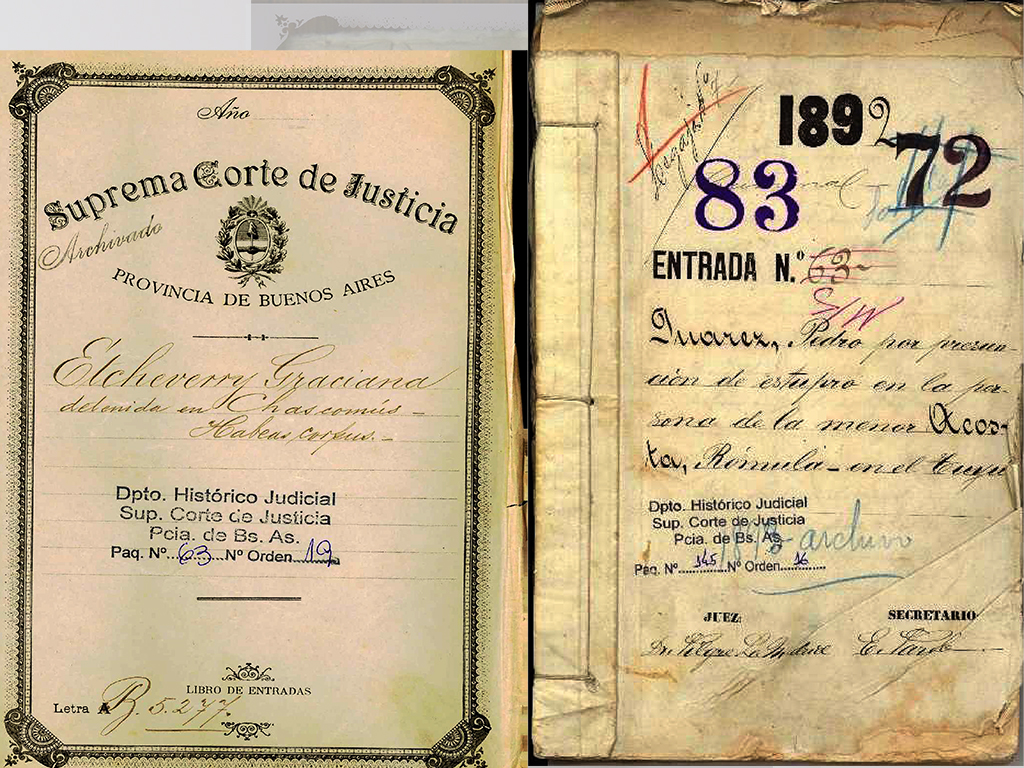 Año
Suprema Corte de Justicia
Archivado
PROVINCIA DE BUENOS AIRES
Etcheverry Graciana
detenida en Chascomús-
Habeas corpus.-
Dpto. Histórico Judicial
Sup. Corte de Justicia
Pcia. de Bs. As.
Paq. Nº...63...Nº Orden...19...
LIBRO DE ENTRADAS
Letra A B. 5.277
1892
72
83
ENTRADA N.º 63-
Juarez, Pedro por presun-
ción de estupro en la per-
sona de la menor Acos-
ta, Rómula - en el Tuyu
Dpto. Histórico Judicial
Sup. Corte de Justicia
Pcia. de Bs. As.
1893 archivo
Paq. Nº...145...Nº Orden...16...
JUEZ:
SECRETARIO
Dr.
E.